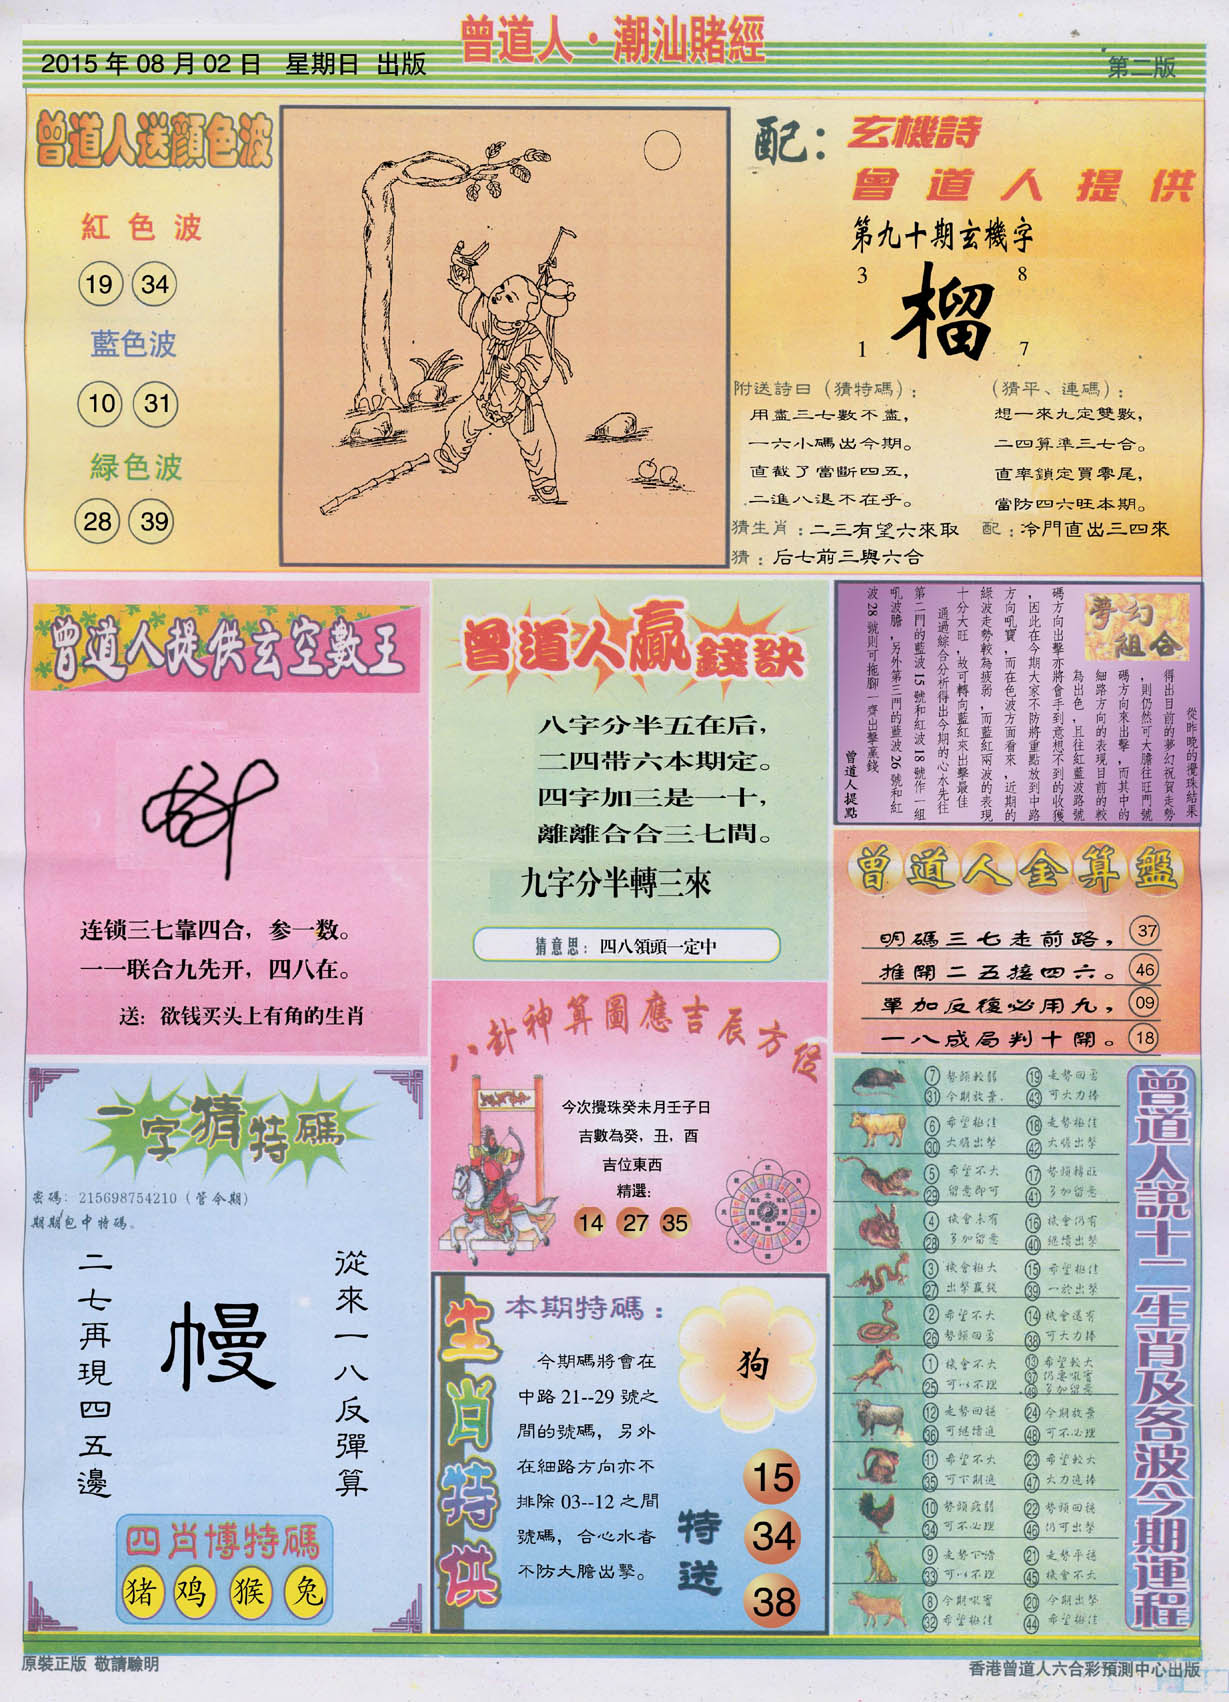 曾道人·潮汕賭經
2015年08月02日 星期日 出版
第二版
曾道人送顏色波
紅色波
19 34
藍色波
10 31
緑色波
28 39
配：玄機詩
曾道人提供
第九十期玄機字
3 8
榴
1 7
附送詩曰（猜特碼）：
用盡三七數不盡，
一六小碼出今期。
直截了當斷四五，
二進八退不在乎。
（猜平、連碼）：
想一來九定雙數，
二四算準三七合。
直率鎖定買零尾，
當防四六旺本期。
猜生肖：二三有望六來取
配：冷門直出三四來
猜：后七前三與六合
曾道人提供玄空數王
连锁三七靠四合，参一数。
一一联合九先开，四八在。
送：欲钱买头上有角的生肖
曾道人贏錢訣
八字分半五在后，
二四带六本期定。
四字加三是一十，
離離合合三七間。
九字分半轉三來
猜意思：四八領頭一定中
夢幻
組合
從昨晚的攪珠結果
得出目前的夢幻祝賀走勢
，則仍然可大膽往旺門號
碼方向來出擊，而其中的
細路方向的表現目前的較
為出色，且往紅藍波路號
碼方向出擊亦將會手到意想不到的收獲
，因此在今期大家不防將重點放到中路
方向吼寶，而在色波方面看來，近期的
綠波走勢較為疲弱，而藍紅兩波的表現
十分大旺，故可轉向藍紅來出擊最佳
通過綜合分析得出今期的心水先往
第二門的藍波15號和紅波18號作一組
吼波膽，另外第三門的藍波26號和紅
波28號則可拖腳一齊出擊贏錢
曾道人提點
曾道人金算盤
明碼三七走前路， 37
推開二五接四六。 46
單加反復必用九， 09
一八成局判十開。 18
八卦神算圖應吉辰方位
今次攪珠癸未月壬子日
吉數為癸，丑，酉
吉位東西
精選：
14 27 35
一字猜特碼
密碼：215698754210（管令期）
期期包中特碼。
從來一八反彈算
幔
二七再現四五邊
四肖博特碼
猪 鸡 猴 兔
生肖特供
本期特碼：
今期碼將會在
中路21--29號之
間的號碼，另外
在細路方向亦不
排除03--12之間
號碼，合心水者
不防大膽出擊。
狗
特送
15
34
38
曾道人説十二生肖及各波今期運程
7 勢頭較弱 19 走勢回勇
31 今期放棄 43 可大力捧
6 希望極佳 18 走勢極佳
30 大膽出擊 42 大膽出擊
5 希望不大 17 勢頭轉旺
29 留意即可 41 多加留意
4 機會未有 16 機會仍有
28 多加留意 40 繼續出擊
3 機會極大 15 希望極佳
27 出擊贏錢 39 一於出擊
2 希望不大 14 機會還有
26 勢頭回勇 38 可大力捧
1 機會不大 13 希望較大
25 可以不理 37 仍要吼實
49 多加留意
12 走勢回穩 24 今期放棄
36 可繼續追 48 可不必理
11 希望不大 23 希望較大
35 可下期追 47 大力追捧
10 勢頭疲弱 22 勢頭回穩
34 可不必理 46 仍可出擊
9 走勢下滑 21 走勢平穩
33 可以不理 45 機會不大
8 今期吸實 20 今期出擊
32 希望極佳 44 希望極佳
原裝正版 敬請驗明
香港曾道人六合彩預測中心出版